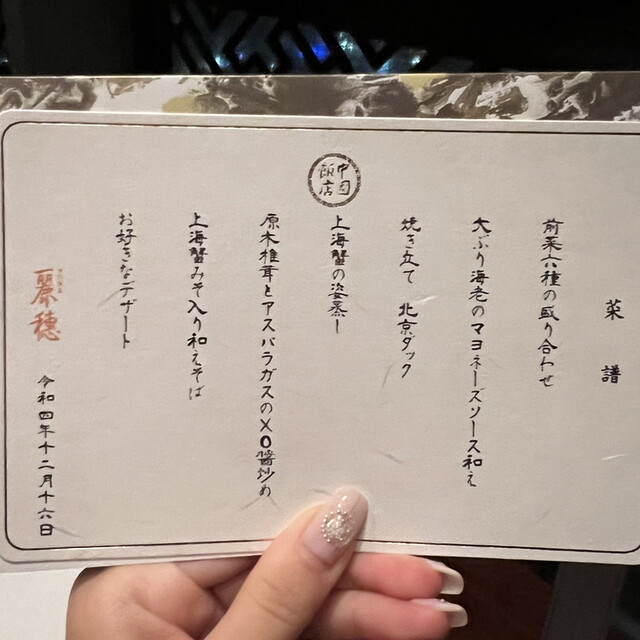 菜譜
前菜六種の盛り合わせ
大ぶり海老のマヨネーズソース和え
焼き立て 北京ダック
中国飯店
上海蟹の姿蒸し
原木椎茸とアスパラガスのXO醤炒め
上海蟹みそ入り和えそば
お好きなデザート
麗穂
令和四年十二月十六日